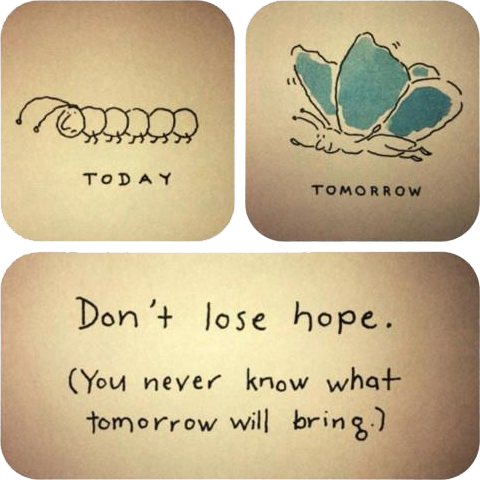 TODAY
TOMORROW
Don't lose hope.
(You never know what
tomorrow will bring.)